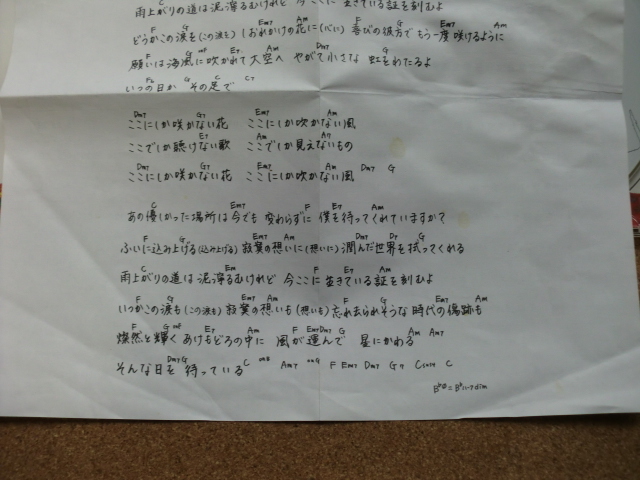 C Em F E7 Am
雨上がりの道は泥濘るむけれど 今ここに 生きている証を刻むよ
F G Em7 Am F G Em7 Am
どうかこの涙を(この涙を) しおれかけの花に(心に) 喜びの彼方で もう一度 咲けるように
F G E7 Am Dm7 G
願いは海風に吹かれて大空へ やがて小さな 虹をわたるよ
G C C7
いつの日か その足で
Dm7 G7 Em7 Am
ここにしか咲かない花 ここにしか吹かない風
E7 Am A7
ここでしか聴けない歌 ここでしか見えないもの
Dm7 G7 Em7 Am Dm7 G
ここにしか咲かない花 ここにしか吹かない風
C Em7 F E7 Am
あの優しかった場所は今でも 変わらずに 僕を待ってくれていますかて
F G Em7 Am Dm7 D7 G
ふいに込み上げる(込み上げる) 寂寞の想いに(想いに) 潤んだ世界を拭ってくれる
C Em F E7 Am
雨上がりの道は泥濘るむけれど 今ここに 生きている証を刻むよ
F G Em7 Am F G Em7 Am
いつかこの涙も(この涙も) 寂寞の想いも(想いも) 忘れ去られそうな 時代の傷跡も
F G E7 Am F Em7 Dm7 G Am Am7
燦然と輝く あけもどろの中に 風が運んで 星にかわる
Dm7 G C Am7 on G F Em7 Dm7 G7 Csus4 C
そんな日を 待っている